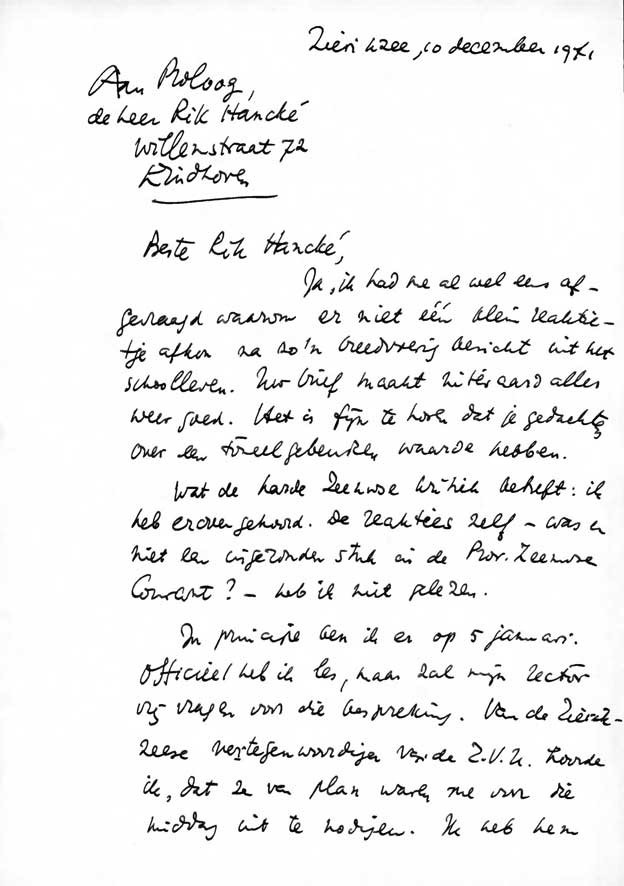 Zierikzee, 10 december 1971
Aan Proloog,
de heer Rik Hancké
Willemstraat 72
Eindhoven
Beste Rik Hancké,
Ja, ik had me al wel eens af-
gevraagd waarom er niet één klein reaktie-
tje afkon na zo'n breedvoerig bericht uit het
schoolleven. Uw brief maakt uiteraard alles
weer goed. Het is fijn te horen dat je gedachten
over een toneelgebeuren waarde hebben.
Wat de harde Zeeuwse kritiek betreft: ik
heb erover gehoord. De reakties zelf - was er
niet een ingezonden stuk in de Prov. Zeeuwse
Courant? - heb ik niet gelezen.
In principe ben ik er op 5 januari.
Officieel heb ik les, maar zal mijn rector
vrij vragen voor die bespreking. Van de Zierik-
zeese vertegenwoordiger van de Z.V.U. hoorde
ik, dat ze van plan waren me voor die
middag uit te nodigen. Ik heb hem